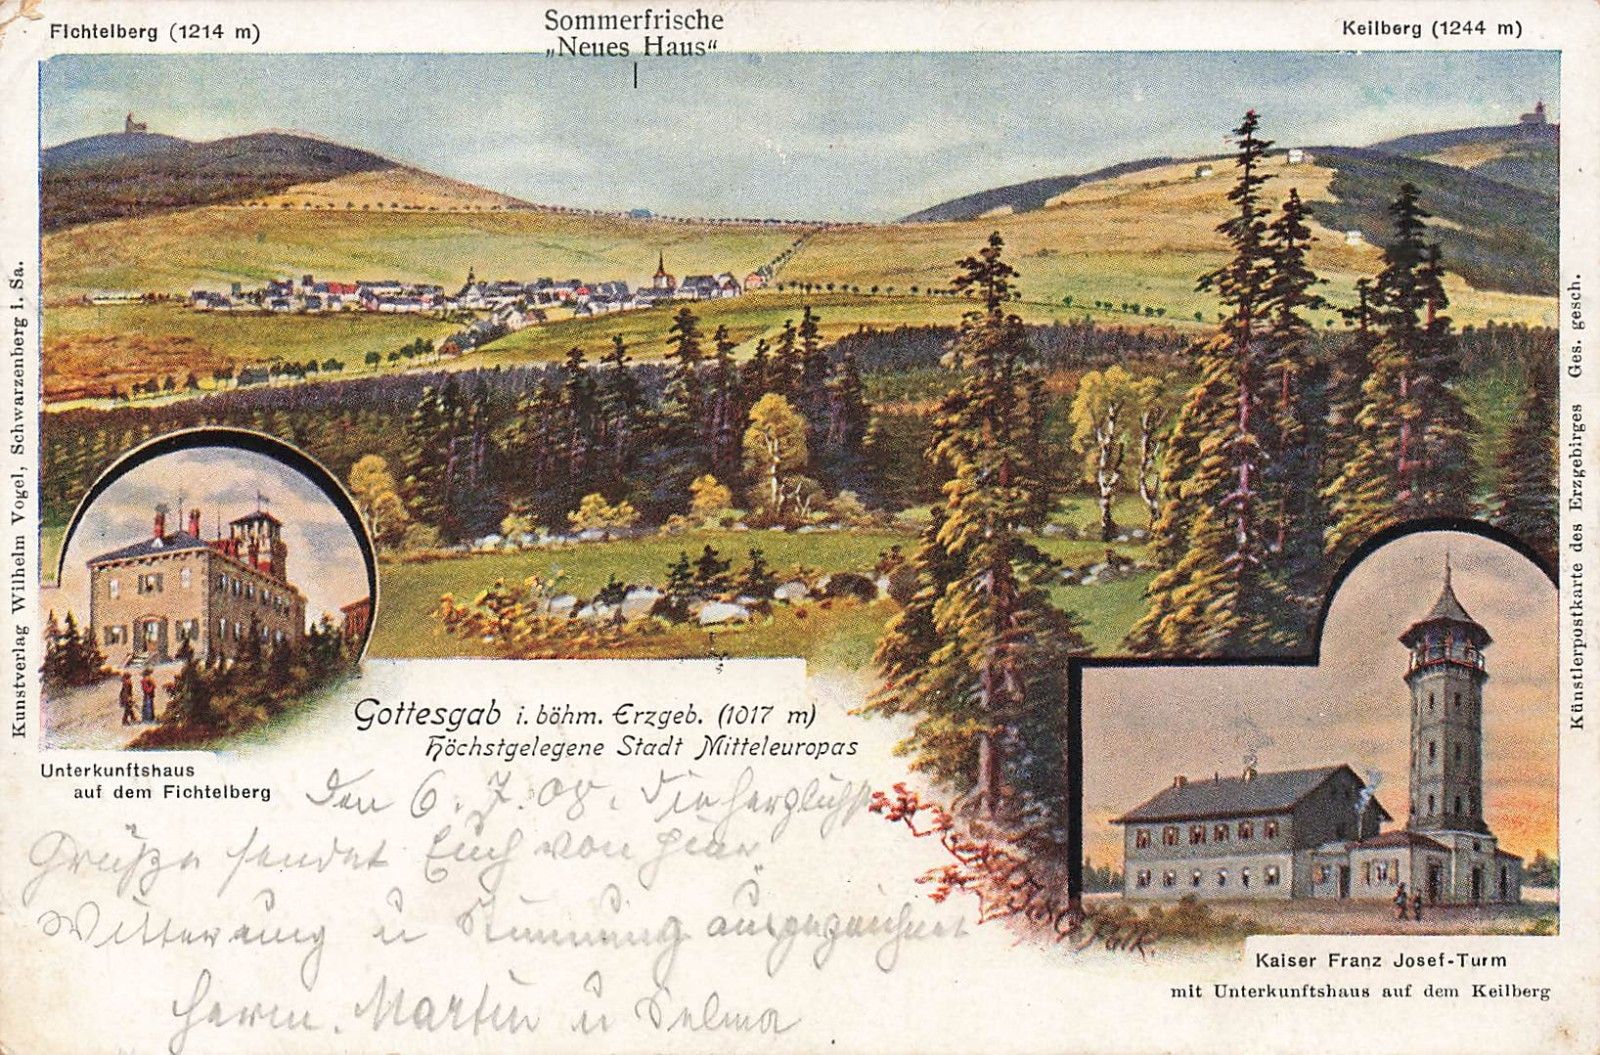 Fichtelberg (1214 m)
Sommerfrische
„Neues Haus“
Keilberg (1244 m)
Kunstverlag Wilhelm Vogel, Schwarzenberg i. Sa.
Künstlerpostkarte des Erzgebirges Ges. gesch.
Gottesgab i. böhm. Erzgeb. (1017 m)
Höchstgelegene Stadt Mitteleuropas
Unterkunftshaus
auf dem Fichtelberg
Den 6. 7. 08. Die herzlichst
Grüße sendet Euch von hier
Witterung u Stimmung ausgezeichnet
Herm. Martin u Selma
Kaiser Franz Josef-Turm
mit Unterkunftshaus auf dem Keilberg